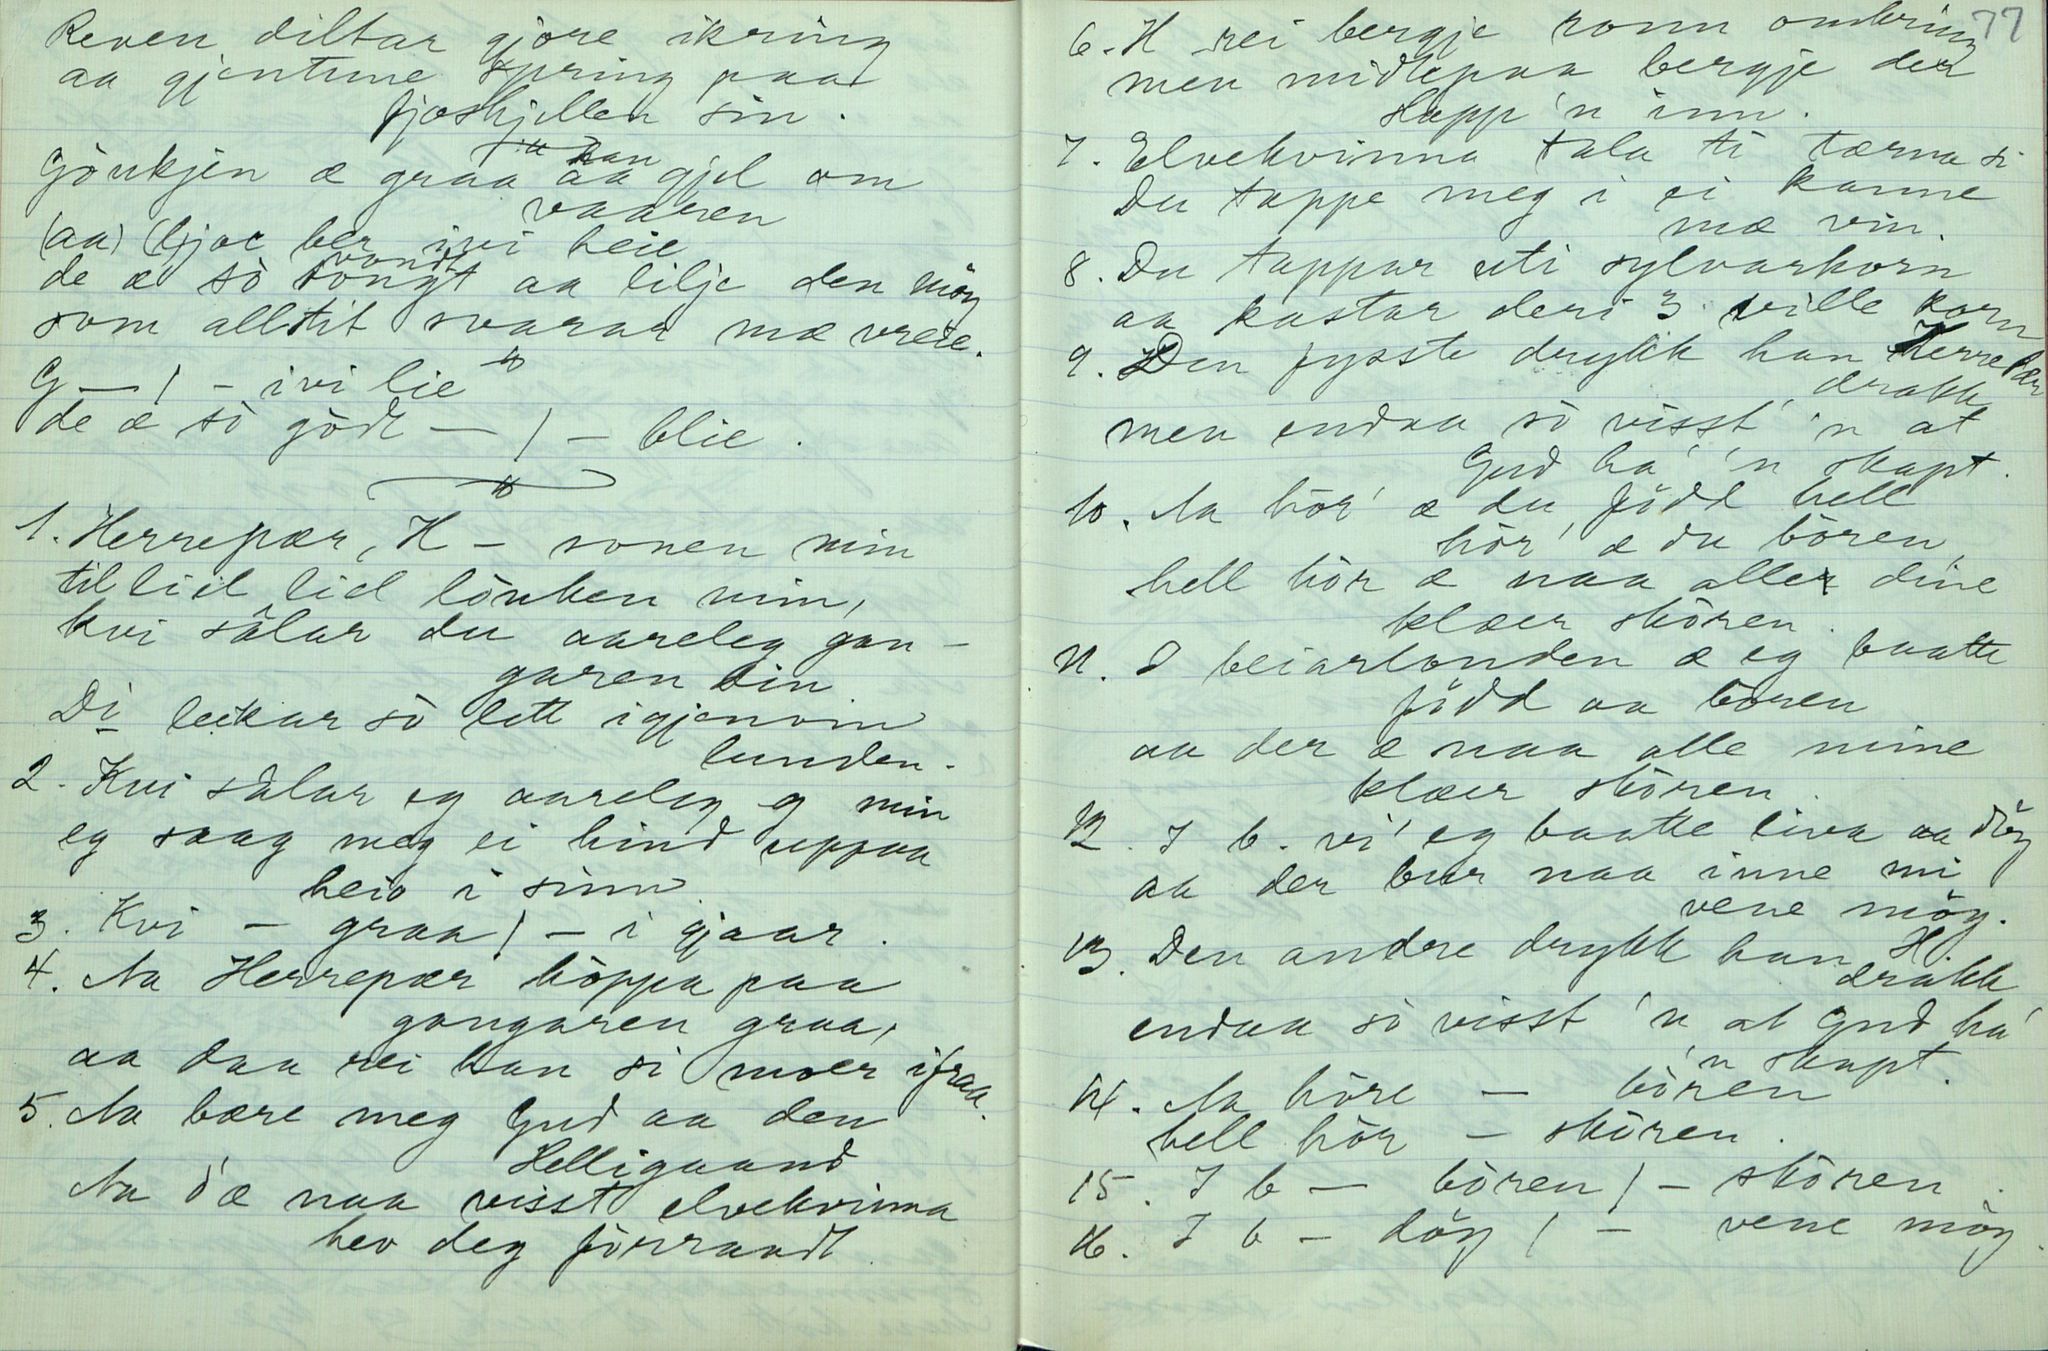 Reven diltar gjöre ikring
aa gjentune spring paa
fjoshjellen sin.
han
Gjöukjen æ graa aa gjel om
vaaren
(aa) ber ivi heie
vondt
de æ sò tongt aa lilje den möy
som alltit svarar mæ vreie.
G — / – ivi lie
de æ sò gödt — / – blie.
1. Herrepær, H – sonen min
til lid lid löuken min,
kvi sålar du aareleg gan-
garen din
Di leikar sò lett igjenom
lunden.
2. Kvi sålar eg aareleg g min
eg saag meg ei hind uppaa
heio i sinn
3. Kvi – graa / – i gjaar.
4. Aa Herrepær höppa paa
gangaren graa,
aa daa rei han si moer ifraa.
5. Aa bære meg Gud aa den
Helligaand
Aa d'æ naa visst elvekvinna
hev deg förraadt
77
6. H rei bergje ronn omkring
men midtepaa bergje der
slapp 'n inn.
7. Elvekvinna tala ti tærna si
Du tappe meg i ei kanne
mæ vin.
8. Du tappar uti sylvarhorn
aa kastar deri 3 ville korn
9. Den fysste drykk han Herrepær
drakk
men endaa sò visst 'n at
Gud ha' 'n skapt.
10. Aa hör' æ du född hell
hör' æ du bören
hell hör æ naa alle dine
klæer skören.
11. I beiarlonden æ eg baatte
född aa boren
aa der æ naa alle mine
klæer skören.
12. I b. vi' eg baatte liva aa döy
aa der bur naa inne mi
vene möy.
13. Den andre drykk han H.
drakk
endaa sò visst 'n at Gud ha'
'n skapt.
14. Aa höre — bören
hell hör – skören.
15. I b — bören / – skören.
16. I b – döy / – vene möy.